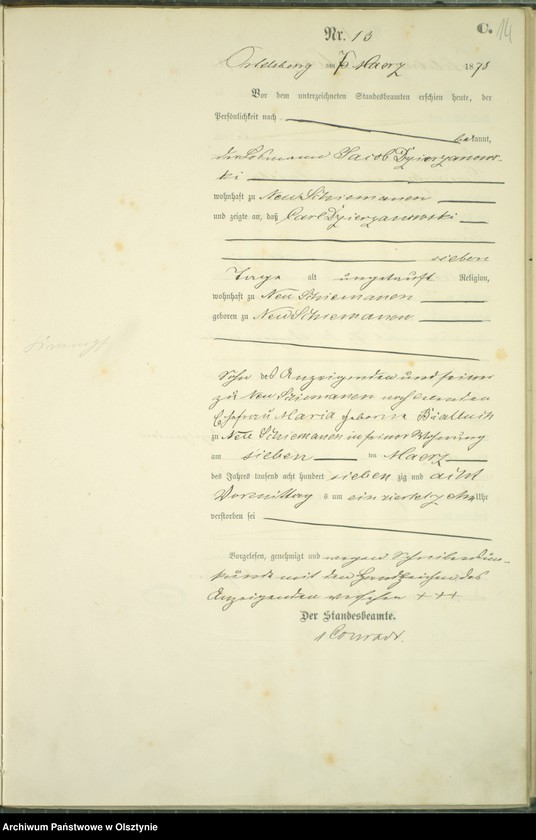 C. 14
Nr. 13
Ortelsburg am 7 Maerz 1878
Vor dem unterzeichneten Standesbeamten erschien heute, der
Persönlichkeit nach
bekannt,
der Losmann Jacob Dzierzanows-
ki
wohnhaft zu Neu Schiemanen
und zeigte an, daß Carl Dzierzanowski
sieben
Tage alt ungetauft Religion,
wohnhaft zu Neu Schiemanen
geboren zu Neu Schiemanen
Sohn des Anzeigenden und seiner
zu Neu Schiemanen noch lebenden
Ehefrau Maria geborene
zu Neu Schiemanen in seiner Wohnung
am sieben ten Maerz
des Jahres tausend acht hundert sieben zig und acht
Vormittag s um ein viertel zehn Uhr
verstorben sei
Vorgelesen, genehmigt und wegen Schreibensun-
kunde mit den Handzeichen des
Anzeigenden versehen +++
Der Standesbeamte.
Conradt.
Archiwum Państwowe w Olsztynie